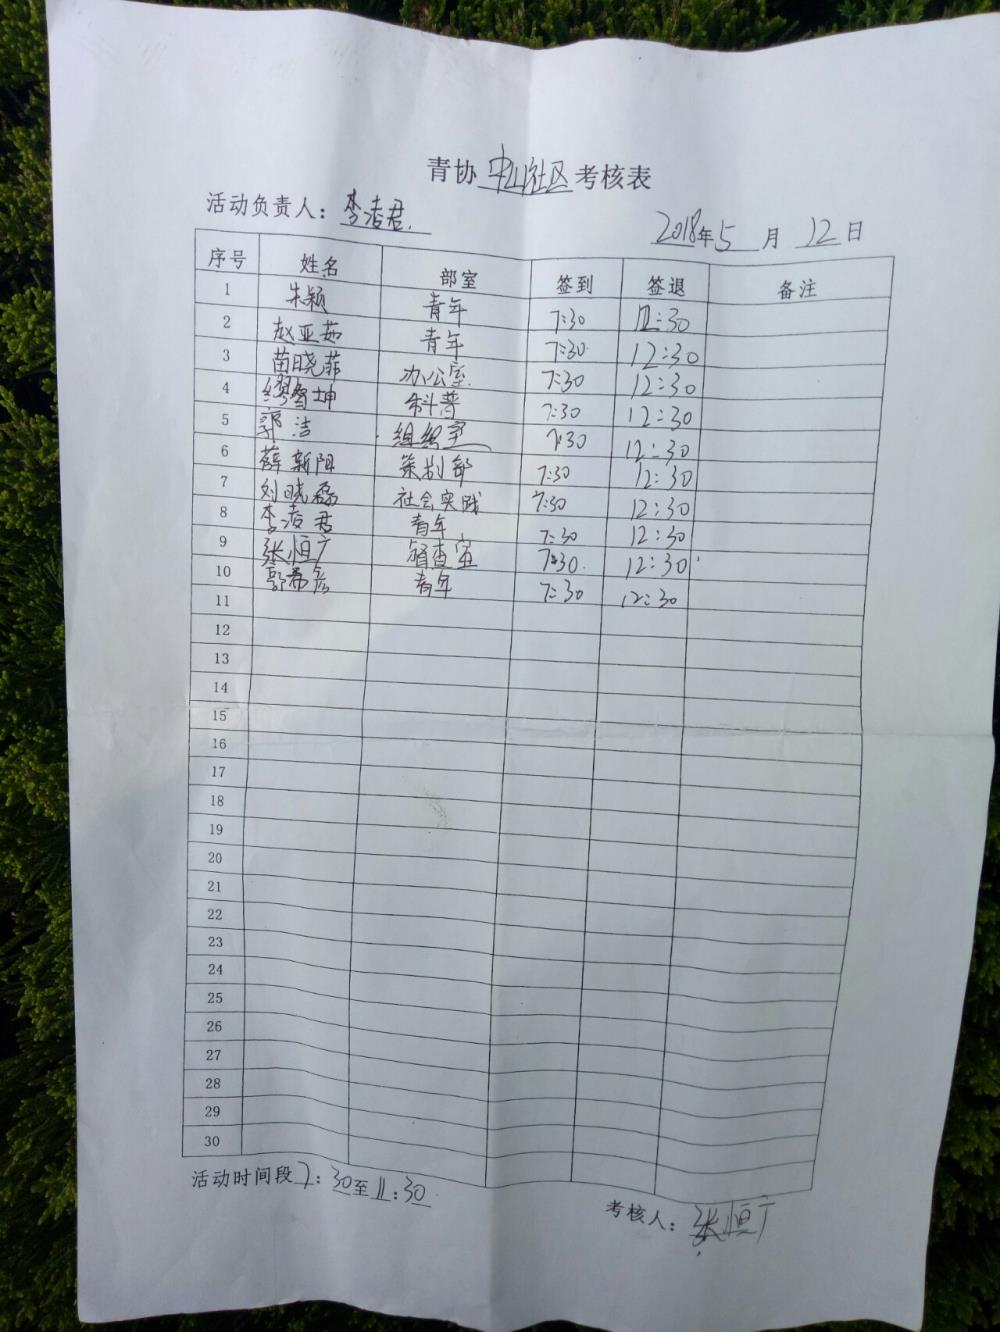 青协 中山社区 考核表
活动负责人：李凌君.
2018年5月12日
序号 姓名 部室 签到 签退 备注
1 朱颖 青年 7:30 12:30
2 赵亚茹 青年 7:30 12:30
3 苗晓菲 办公室 7:30 12:30
4 坤 科普 7:30 12:30
5 郭洁 组织室 7:30 12:30
6 薛新阳 策划部 7:30 12:30
7 刘晓磊 社会实践 7:30 12:30
8 李凌君 青年 7:30 12:30
9 张恒广 督查室 7:30 12:30
10 郭希彦 青年 7:30 12:30
11
12
13
14
15
16
17
18
19
20
21
22
23
24
25
26
27
28
29
30
活动时间段7:30至11:30
考核人：张恒广